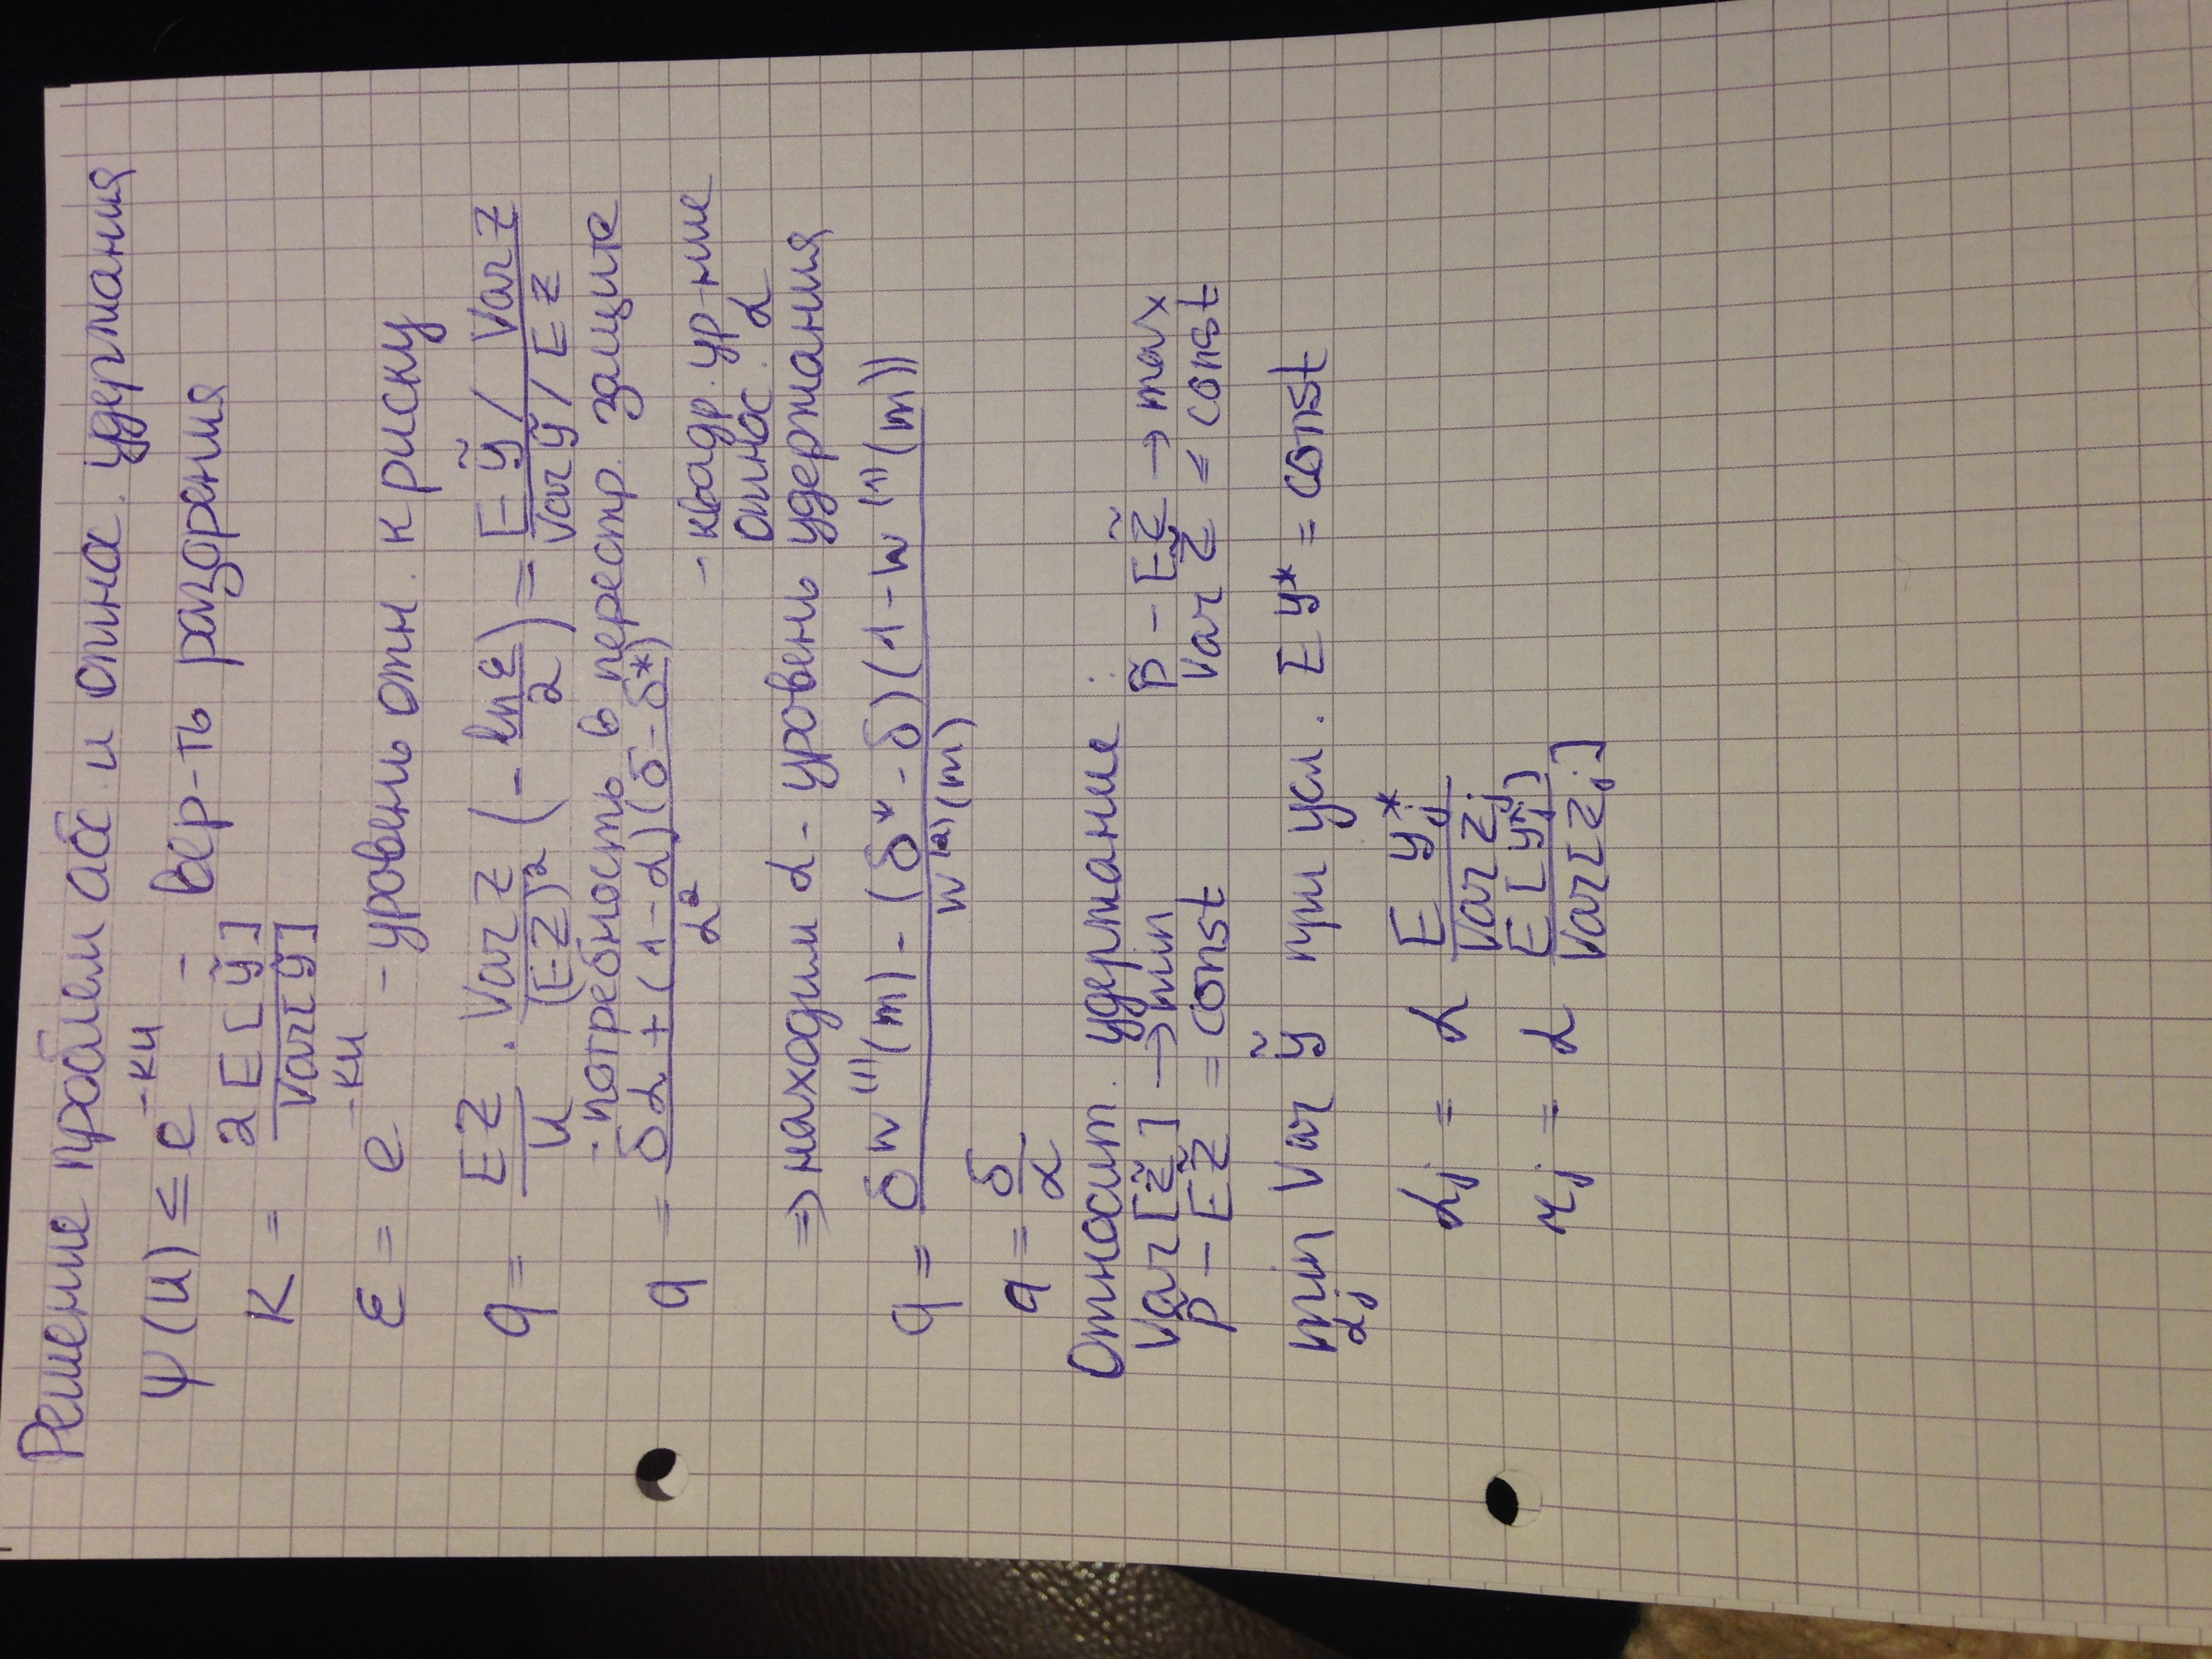 Решение проблем абс. и отна. удержания
ψ(u) ≤ e^{-ku} - вер-ть разорения
K = 2E[ỹ] / Var[ỹ]
ε = e^{-ku} - уровень отн. к риску
q = EZ/u · Var Z/(EZ)² (-ln ε/2) = Eỹ/Var ỹ / Var Z/EZ
- потребность в перестр. защите
q = δα + (1-α)(δ-δ*) / α² - квадр. ур-ние
относ. α
⇒ находим α - уровень удержания
q = δw⁽¹⁾(m) - (δ* - δ)(1 - w⁽¹⁾(m)) / w⁽²⁾(m)
q = δ/α
Относит. удержание:
Var[Z̃] → min P̃ - EZ̃ → max
P - EZ̃ = const Var Z̃ ≤ const
min Var ỹ при усл. Ey* = const
αj
αj = α E yj* / Var Zj
rj = α E[yj*] / Var[Zj]